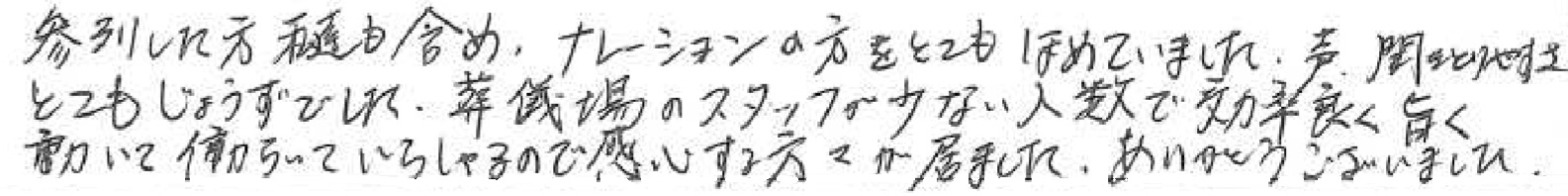 参列した方種も含め、ナレーションの方をとてもほめていました。声、聞きとりやすさ
とてもじょうずでした。葬儀場のスタッフが少ない人数で効率良く旨く
動いて働らいていらしゃるので感心する方々が居ました。ありがとうございました。